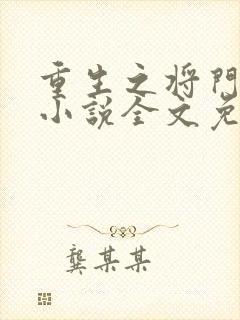 重生之将門
小説全文免
龔某某